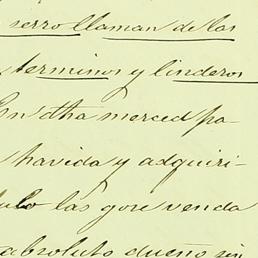 serro llaman de las
terminos y linderos
En dha merced pa-
havida y adquiri-
las gore venda
absoluto dueño sin